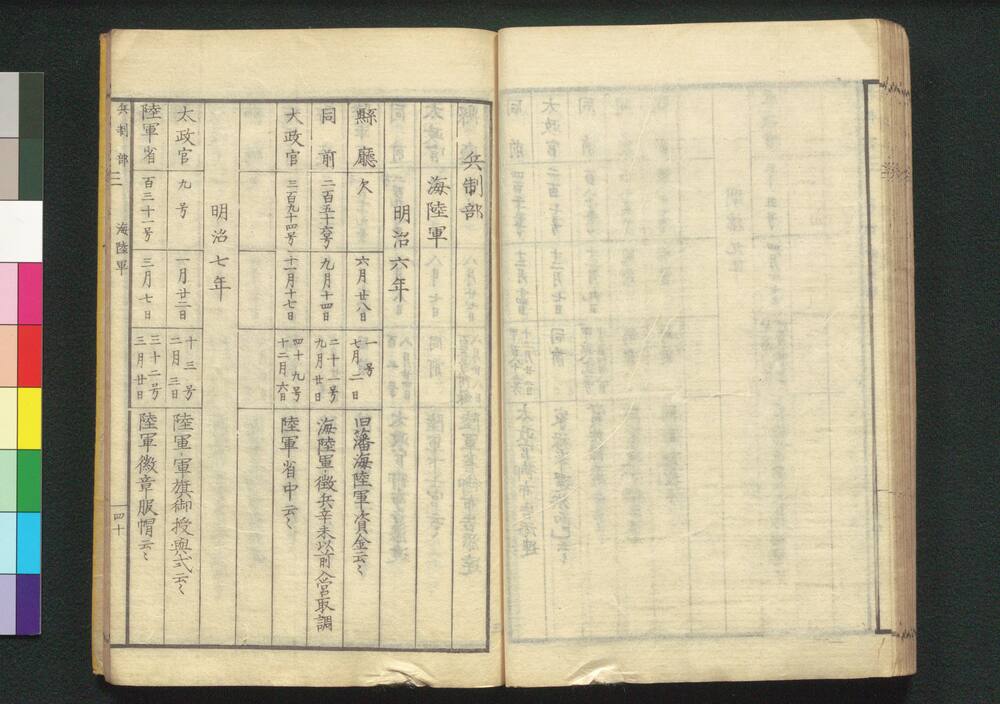 兵制部
海陸軍
明治六年
縣廳 欠 六月廿八日 一号 七月二日 旧藩海陸軍資金云〻
同前 二百五十六号 九月十四日 二十一号 九月廿日 海陸軍徴兵辛未以前入営取調
太政官 三百九十四号 十一月十七日 四十九号 十二月六日 陸軍省中云〻
明治七年
太政官 九号 一月廿二日 十三号 二月三日 陸軍軍旗御授與式云〻
陸軍省 百三十一号 三月七日 三十二号 三月廿日 陸軍徽章服帽云〻
兵制部 海陸軍 四十